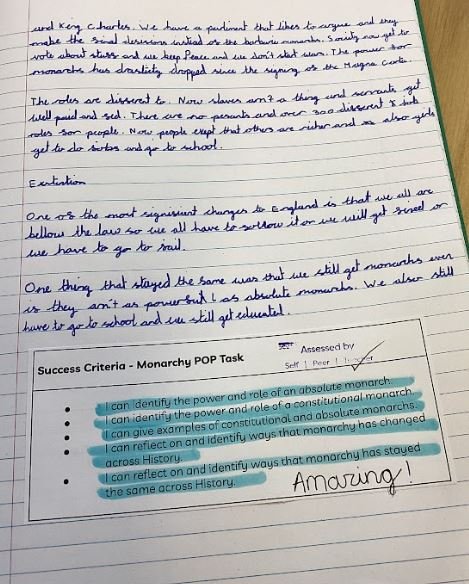 and King Charles. We have a parliment that likes to argue and they
make the final desisions instead of the barbaric monarchs. Society now get to
vote about stuff and we keep Peace and we don't start wars. The power for
monarchs has drasticly dropped since the signing of the Magna Carta.
The roles are different to. Now slaves arn't a thing and servants get
well paid and fed. There are no pesants and over 300 different
roles for people. Now people exept that others are richer and also girls
get to do and go to school.
Extention
One of the most significant changes to England is that we all are
bellow the law so we all have to follow it or we will get fined or
we have to go to jail.
One thing that stayed the same was that we still get monarchs even
if they arn't as powerful as absolute monarchs. We also still
have to go to school and we still get educated.
Success Criteria - Monarchy POP Task
Assessed by
Self | Peer | Teacher
• I can identify the power and role of an absolute monarch.
• I can identify the power and role of a constitutional monarch.
• I can give examples of constitutional and absolute monarchs.
• I can reflect on and identify ways that monarchy has changed
across History.
• I can reflect on and identify ways that monarchy has stayed
the same across History.
Amazing!